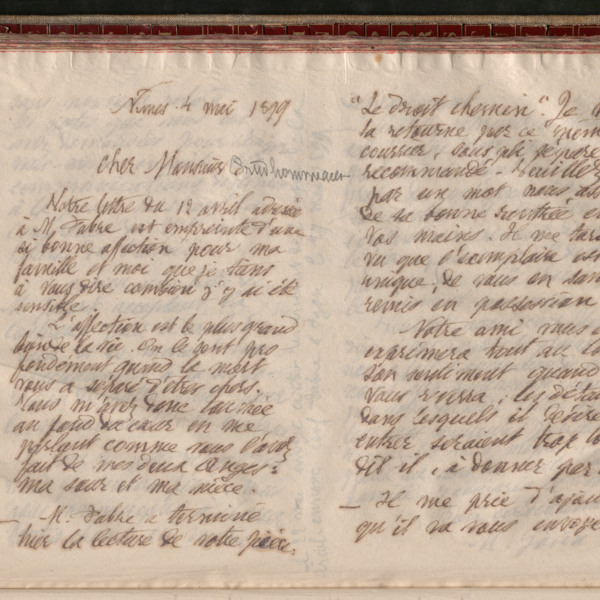 Nîmes 4 mai 1899
Cher Monsieur
Votre lettre du 12 avril adressée
à M. Fabre est empreinte d'une
si bonne affection pour ma
famille et moi que je tiens
à vous dire combien j'y ai été
sensible.
L'affection est le plus grand
bien de la vie. On le sent pro
fondément quand la mort
vous a séparé d'êtres chers.
Vous m'avez donc touchée
au fond du cœur en me
parlant comme vous l'avez
fait de mes deux anges :
ma sœur et ma nièce.
— M. Fabre a terminé
hier la lecture de votre pièce,
"Le droit chemin". Je
la retourne par ce
courrier, sous pli
recommandé. Veuillez
par un mot nous
de sa bonne rentrée
vos mains. Je me
vu que l'exemplaire est
unique, de vous en
remis en possession
Votre ami vous
exprimera tout au
son sentiment quand
vous verra ; les
dans lesquels il
entrer seraient trop
dit-il, à donner par
— Il me prie d'
qu'il va vous